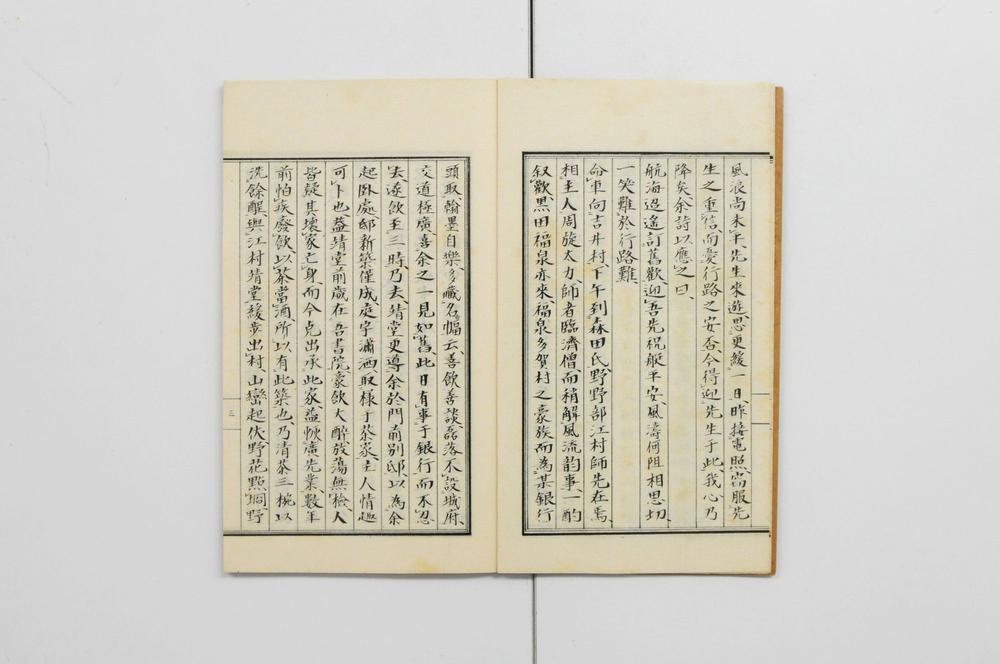 風浪尚未平、先生來遊、思更緩一日、昨接電照、尚服先
生之重信、而憂行路之安否、今得迎先生于此、我心乃
降矣、余詩以應之曰、
航海迢遙訂舊歡、迎吾先祝艇平安、風濤何阻相思切、
一笑難於行路難、
命車向吉井村、下午到森田氏、野野部江村師先在焉、
相主人周旋太力、師者臨濟僧、而稍解風流韵事、一酌
叙歡、黒田福泉亦來、福泉多賀村之豪族、而為某銀行
頭取、翰墨自樂、多藏名幅云、善飲善談、磊落不設城府、
交道極廣、喜余之一見如舊、此日有事于銀行、而不忍
去、遂飲至三時、乃去、靖堂更導余於門前別邸、以為余
起臥處、邸新築僅成、庭宇瀟洒、取樣于茶家、主人情趣
可卜也、蓋靖堂前歳在吾書院、豪飲大醉、放蕩無檢、人
皆疑其壞家亡身、而今克出承此家、益恢廣先業、數年
前怕疾廢飲、以茶當酒、所以有此築也、乃清茶三椀、以
洗餘酲、與江村靖堂緩歩出村、山巒起伏、野花點㘭、野
三